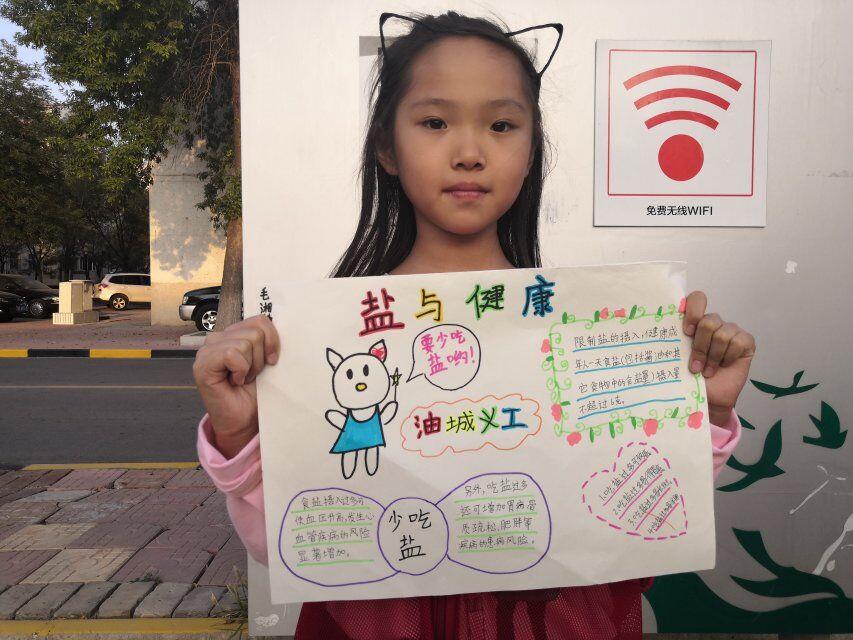 免费无线WIFI
毛湘
盐与健康
要少吃
盐哟!
限制盐的摄入,健康成
年人一天食盐(包括酱油和其
它食物中的食盐量)摄入量
不超过6克。
油城义工
食盐摄入过多可
使血压升高,发生心
血管疾病的风险
显著增加。
少吃
盐
另外,吃盐过多
还可增加胃病,骨
质疏松,肥胖等
疾病的患病风险。
1.吃盐过多
2.吃盐过多
3.吃盐过多